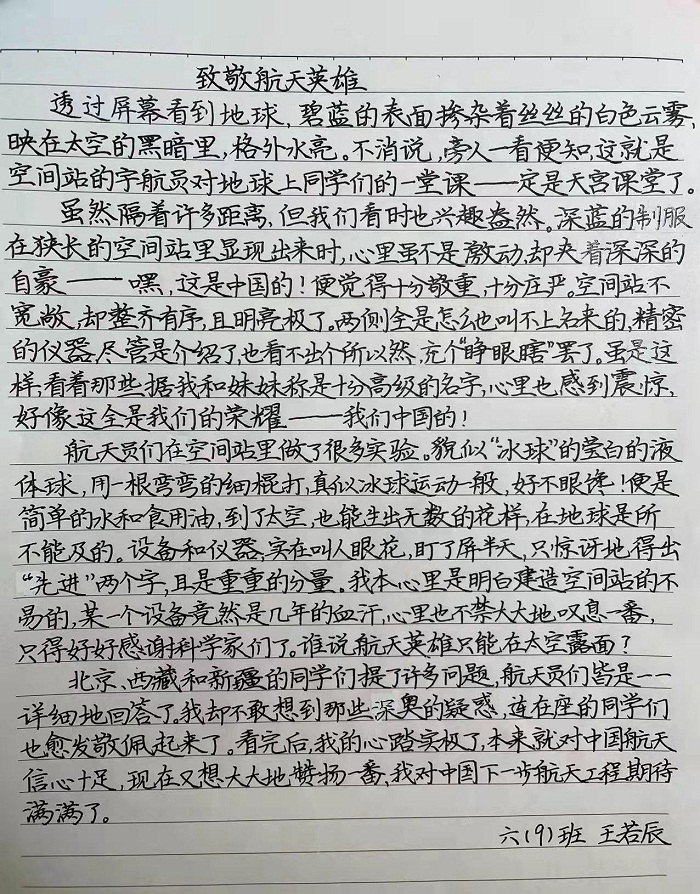 致敬航天英雄
透过屏幕看到地球，碧蓝的表面掺杂着丝丝的白色云雾，
映在太空的黑暗里，格外水亮。不消说，旁人一看便知，这就是
空间站的宇航员对地球上同学们的一堂课——定是天宫课堂了。
虽然隔着许多距离，但我们看时也兴趣盎然。深蓝的制服
在狭长的空间站里显现出来时，心里虽不是激动，却夹着深深的
自豪——嘿，这是中国的！便觉得十分敬重，十分庄严。空间站不
宽敞，却整齐有序，且明亮极了。两侧全是怎么也叫不上名来的，精密
的仪器，尽管是介绍了，也看不出个所以然，充个“睁眼瞎”罢了。虽是这
样，看着那些据我和妹妹称是十分高级的名字，心里也感到震惊，
好像这全是我们的荣耀——我们中国的！
航天员们在空间站里做了很多实验。貌似“冰球”的莹白的液
体球，用一根弯弯的细棍打，真似冰球运动一般，好不眼馋！便是
简单的水和食用油，到了太空，也能生出无数的花样，在地球是所
不能及的。设备和仪器，实在叫人眼花，盯了屏半天，只惊讶地得出
“先进”两个字，且是重重的分量。我本心里是明白建造空间站的不
易的，某一个设备竟然是几年的血汗，心里也不禁大大地叹息一番，
只得好好感谢科学家们了。谁说航天英雄只能在太空露面？
北京、西藏和新疆的同学们提了许多问题，航天员们皆是一一
详细地回答了。我却不敢想到那些深奥的疑惑，连在座的同学们
也愈发敬佩起来了。看完后，我的心踏实极了，本来就对中国航天
信心十足，现在又想大大地赞扬一番，我对中国下一步航天工程期待
满满了。
六(9)班 王若辰